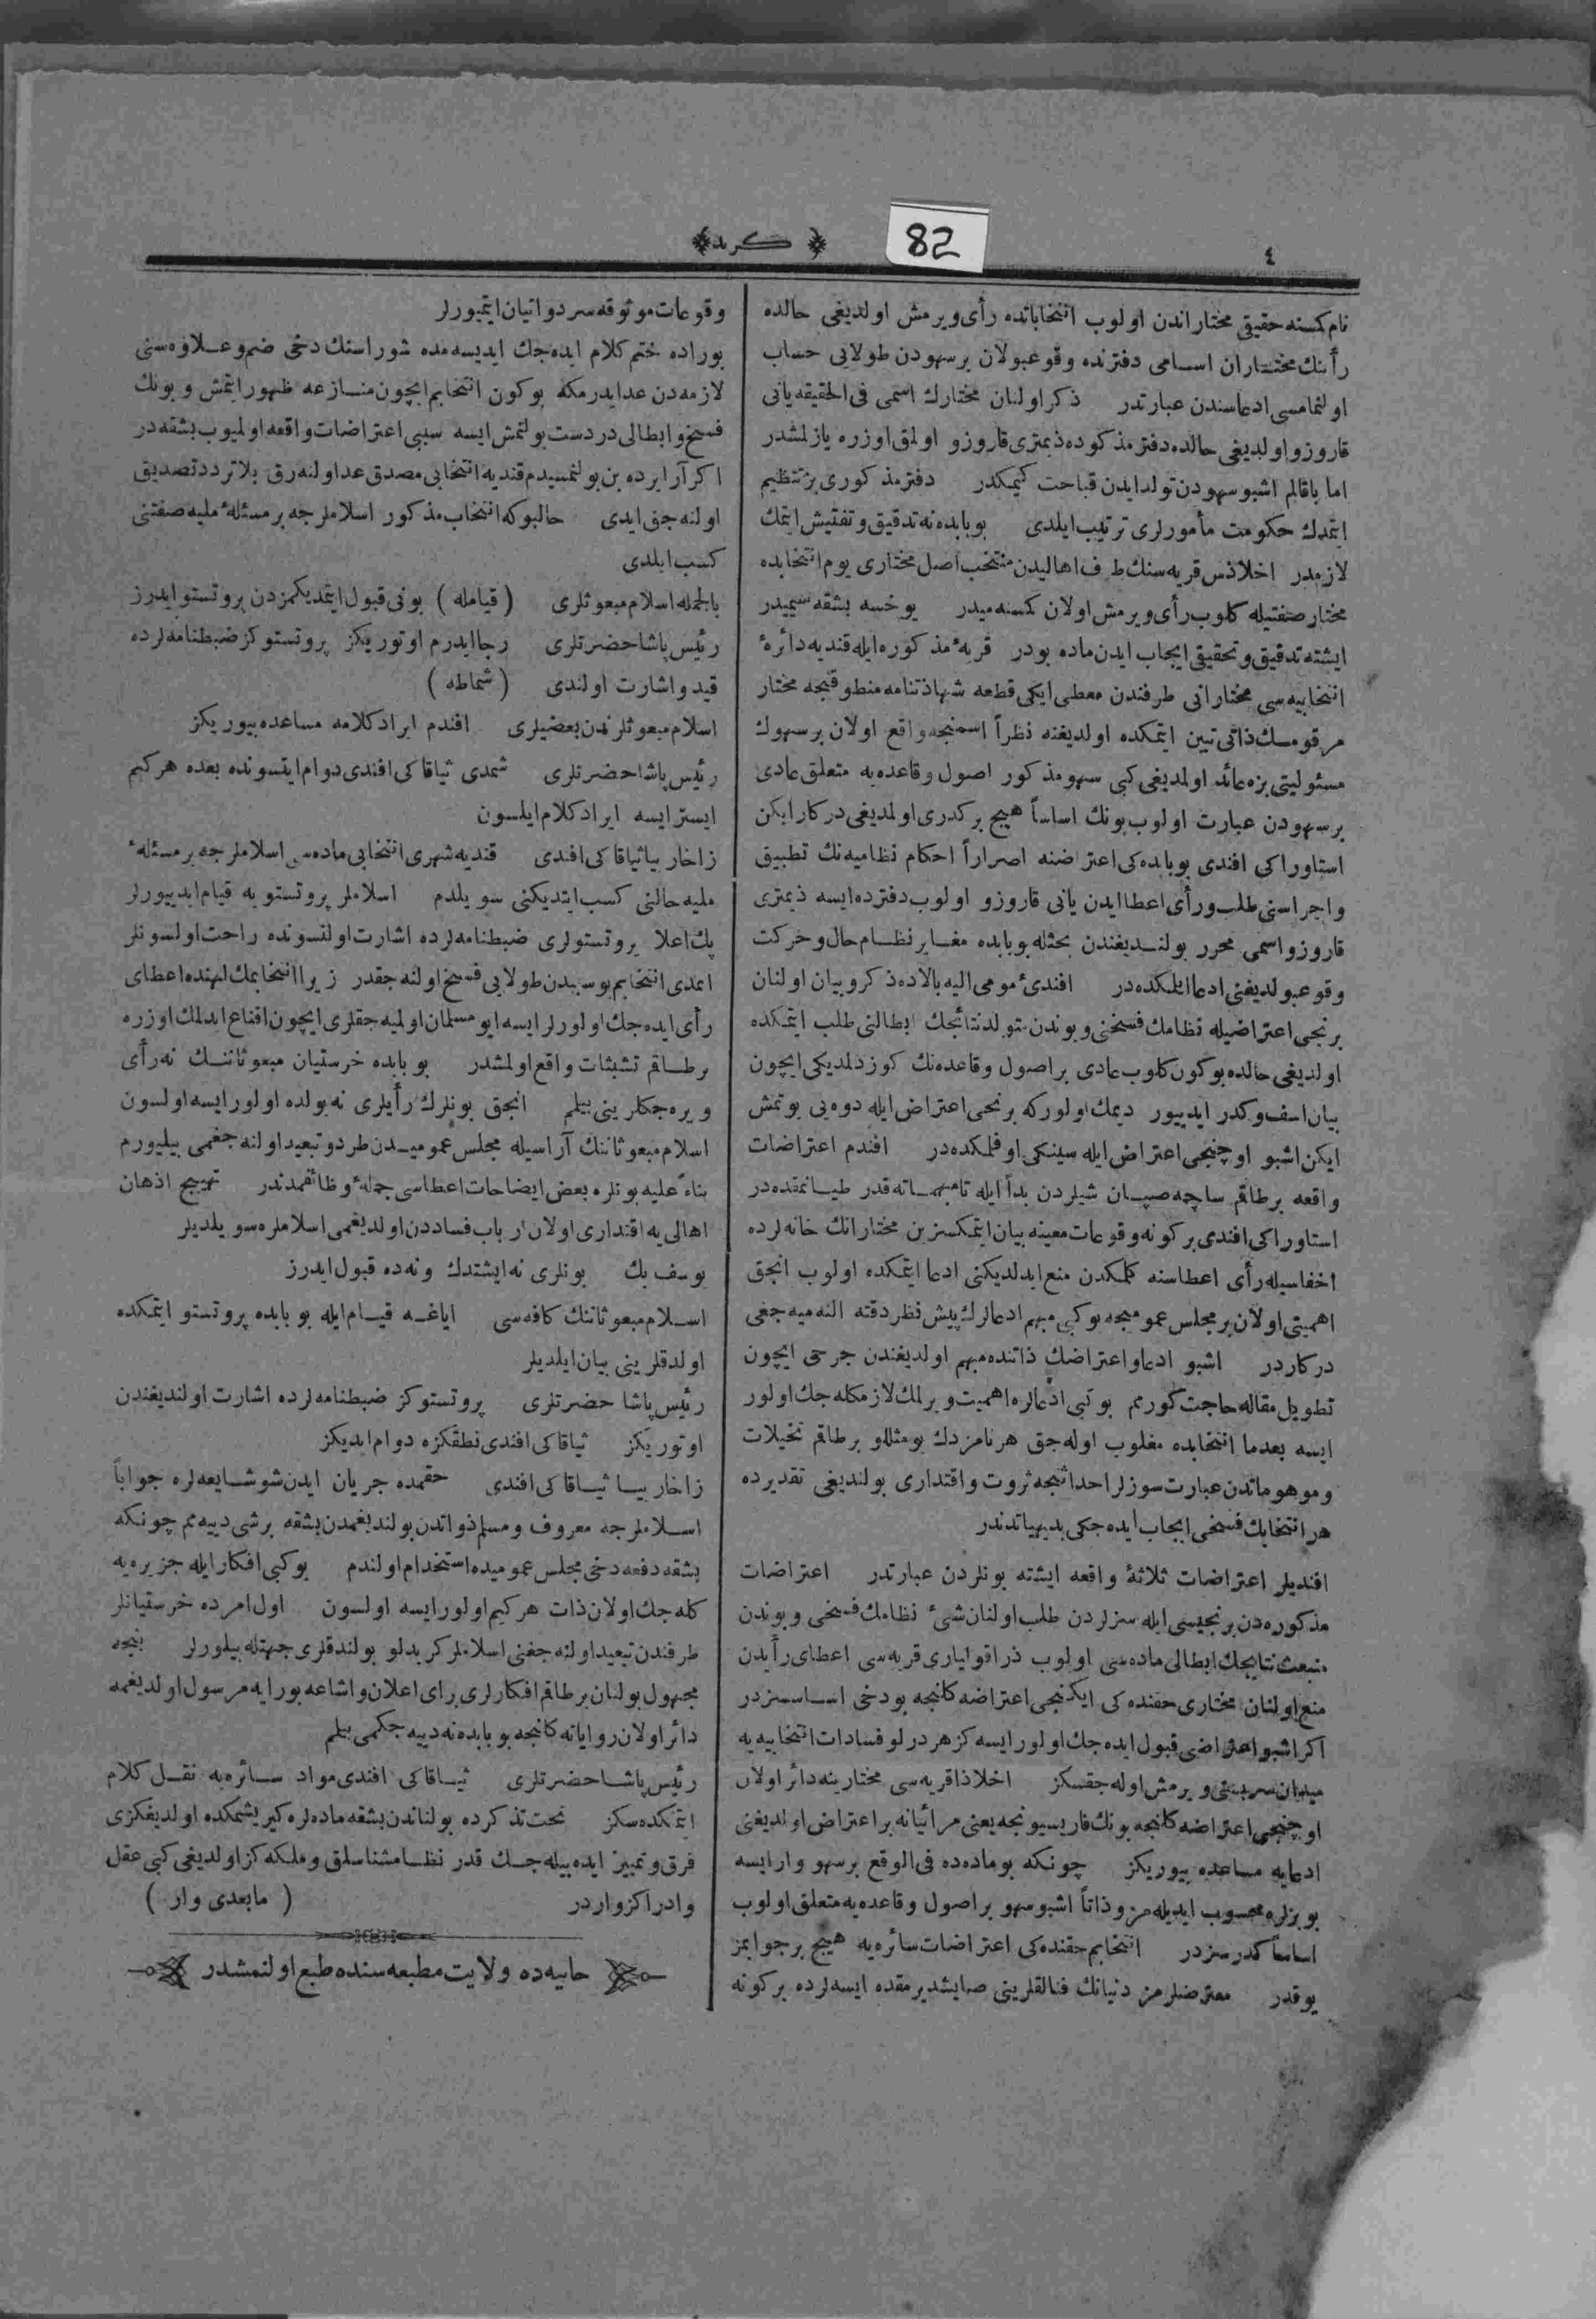 ٤
82
﴿ كريد ﴾
نام كسنه حقيقى مختاراندن اولوب انتخاباتده رأى ويرمش اولديغى حالده
رأينك مختاران اسامى دفترنده وقوعبولان برسهودن طولايى حساب
اولنمامسى ادعاسندن عبارتدر ذكر اولنان مختارك اسمى فى الحقيقه يانى
قاروزو اولديغى حالده دفتر مذكوره ذيمترى قاروزو اولمق اوزره يازلمشدر
اما باقالم اشبو سهودن تولد ايدن قباحت كيمكدر دفتر مذكورى بز تنظيم
ايتمدك حكومت مأمورلرى ترتيب ايلدى بوبابده نه تدقيق وتفتيش ايتمك
لازمدر اخلاذس قريه سنك طرف اهاليدن منتخب اصل مختارى يوم انتخابده
مختار صفتيله كلوب رأى ويرمش اولان كسنه ميدر يوخسه بشقه سيميدر
ايشته تدقيق وتحقيقى ايجاب ايدن ماده بودر قريهٔ مذكوره ايله قنديه دائرهٔ
انتخابيه سى مختارانى طرفندن معطى ايكى قطعه شهادتنامه منطوقنجه مختار
مرقومك ذاتى تبين ايتمكده اولديغنه نظراً اسمنجه واقع اولان برسهوك
مسئوليتى بزه عائد اولمديغى كبى سهو مذكور اصول وقاعده يه متعلق عادى
برسهودن عبارت اولوب بونك اساساً هيچ بركدرى اولمديغى دركار ايكن
استاوراكى افندى بوبابده كى اعتراضنه اصراراً احكام نظاميه نك تطبيق
واجراسنى طلب ورأى اعطا ايدن يانى قاروزو اولوب دفترده ايسه ذيمترى
قاروزو اسمى محرر بولنديغندن بحثله بوبابده مغاير نظام حال وحركت
وقوعبولديغنى ادعا ايلمكده در افندىٔ مومى اليه بالاده ذكر وبيان اولنان
برنجى اعتراضيله نظامك فسخنى وبوندن متولد نتائجك ابطالنى طلب ايتمكده
اولديغى حالده بوكون كلوب عادى براصول وقاعده نك كوزدلمديكى ايچون
بيان اسف وكدر ايدييور ديمك اولوركه برنجى اعتراض ايله دوه يى يوتمش
ايكن اشبو اوچنجى اعتراض ايله سينكى اوفلمكده در افندم اعتراضات
واقعه برطاقم ساچمه صپان شيلردن بدأ ايله تامبهماته قدر طيانمقده در
استاوراكى افندى بركونه وقوعات معينه بيان ايتمكسزين مختارانك خانه لرده
اخفاسيله رأى اعطاسنه كلمكدن منع ايدلديكنى ادعا ايتمكده اولوب انجق
اهميتى اولان بر مجلس عموميجه بوكبى مبهم ادعالرك پيش نظر دقته النه ميه جغى
دركاردر اشبو ادعا واعتراضك ذاتنده مبهم اولديغندن جرحى ايچون
تطويل مقاله حاجت كورمم بوكبى ادعالره اهميت ويرلمك لازمكله جك اولور
ايسه بعدما انتخابده مغلوب اوله جق هرنامزدك بومثللو برطاقم تخيلات
وموهوماتدن عبارت سوزلر احداثنجه ثروت واقتدارى بولنديغى تقديرده
هر انتخابك فسخى ايجاب ايده جكى بديهياتدندر
افنديلر اعتراضات ثلاثهٔ واقعه ايشته بونلردن عبارتدر اعتراضات
مذكوره دن برنجيسى ايله سزلردن طلب اولنان شىء نظامك فسخى وبوندن
منبعث نتايجك ابطالى ماده سى اولوب ذراقولياارى قريه سى اعطاى رأيدن
منع اولنان مختارى حقنده كى ايكنجى اعتراضه كلنجه بودخى اساسسزدر
اكر اشبو اعتراضى قبول ايده جك اولور ايسه كز هر درلو فسادات انتخابيه يه
ميدان سربستى ويرمش اوله جقسكز اخلاذا قريه سى مختارينه دائر اولان
اوچنجى اعتراضه كلنجه بونك فاريسيونجه يعنى مرائيانه بر اعتراض اولديغنى
ادعايه مساعده بيوريكز چونكه بوماده ده فى الوقع برسهو وار ايسه
بوبزلره محسوب ايديله مز وذاتاً اشبو سهو براصول وقاعده يه متعلق اولوب
اساساً كدرسزدر انتخابم حقنده كى اعتراضات سائره يه هيچ برجوابمز
يوقدر معترضلرمز دنيانك فنالقلرينى صايشديرمقده ايسه لرده بركونه
وقوعات موثوقه سرد واتيان ايتميورلر
بوراده ختم كلام ايده جك ايديسه مده شوراسنك دخى ضم وعلاوه سنى
لازمه دن عد ايدرمكه بوكون انتخابم ايچون منازعه ظهور ايتمش وبونك
فسخ وابطالى دردست بولنمش ايسه سببى اعتراضات واقعه اولميوب بشقه در
اكر آراده بن بولنمسيدم قنديه انتخابى مصدق عد اولنه رق بلاتردد تصديق
اولنه جق ايدى حالبوكه انتخاب مذكور اسلاملرجه بر مسئلهٔ مليه صفتنى
كسب ايلدى
بالجمله اسلام مبعوثلرى (قيامله) بونى قبول ايتمديكمزدن پروتستو ايدرز
رئيس پاشا حضرتلرى رجا ايدرم اوتوريكز پروتستوكز ضبطنامه لرده
قيد واشارت اولندى (شماطه)
اسلام مبعوثلرندن بعضيلرى افندم ايراد كلامه مساعده بيوريكز
رئيس پاشا حضرتلرى شمدى ثياقاكى افندى دوام ايتسونده بعده هركيم
ايستر ايسه ايراد كلام ايلسون
زاخاريا ثياقاكى افندى قنديه شهرى انتخابى ماده سى اسلاملرجه بر مسئلهٔ
مليه حالنى كسب ايتديكنى سويلدم اسلاملر پروتستويه قيام ايدييورلر
پك اعلا پروتستولرى ضبطنامه لرده اشارت اولنسونده راحت اولسونلر
ايمدى انتخابم بوسببدن طولايى فسخ اولنه جقدر زيرا انتخابمك لهنده اعطاى
رأى ايده جك اولورلر ايسه ايو مسلمان اولميه جقلرى ايچون اقناع ايدلمك اوزره
برطاقم تشبثات واقع اولمشدر بوبابده خرستيان مبعوثاننك نه رأى
ويره جكلرينى بيلم انجق بونلرك رأيلرى نه يولده اولور ايسه اولسون
اسلام مبعوثاننك آراسيله مجلس عموميدن طرد وتبعيد اولنه جغمى بيليورم
بناءً عليه بونلره بعض ايضاحات اعطاسى جملهٔ وظائفمدندر تهييج اذهان
اهالى يه اقتدارى اولان ارباب فساددن اولديغمى اسلاملره سويلديلر
يوسف بك بونلرى نه ايشتدك ونه ده قبول ايدرز
اسلام مبعوثاننك كافه سى اياغه قيام ايله بوبابده پروتستو ايتمكده
اولدقلرينى بيان ايلديلر
رئيس پاشا حضرتلرى پروتستوكز ضبطنامه لرده اشارت اولنديغندن
اوتوريكز ثياقاكى افندى نطقكزه دوام ايديكز
زاخاريا ثياقاكى افندى حقمده جريان ايدن شو شايعه لره جواباً
اسلاملرجه معروف ومسلم ذواتدن بولنديغمدن بشقه برشى دييه مم چونكه
بشقه دفعه دخى مجلس عموميده استخدام اولندم بوكبى افكار ايله جزيره يه
كله جك اولان ذات هركيم اولور ايسه اولسون اول امرده خرستيانلر
طرفندن تبعيد اولنه جغنى اسلاملر كريدلو بولندقلرى جهتله بيلورلر بنجه
مجهول بولنان برطاقم افكارلرى براى اعلان واشاعه بورايه مرسول اولديغمه
دائر اولان رواياته كلنجه بوبابده نه دييه جكمى بيلمم
رئيس پاشا حضرتلرى ثياقاكى افندى مواد سائره يه نقل كلام
ايتمكده سكز تحت تذكرده بولناندن بشقه ماده لره كيريشمكده اولديغكزى
فرق وتمييز ايده بيله جك قدر نظامشناسلق وملكه كز اولديغى كبى عقل
وادراكز واردر (مابعدى وار)
حانيه ده ولايت مطبعه سنده طبع اولنمشدر